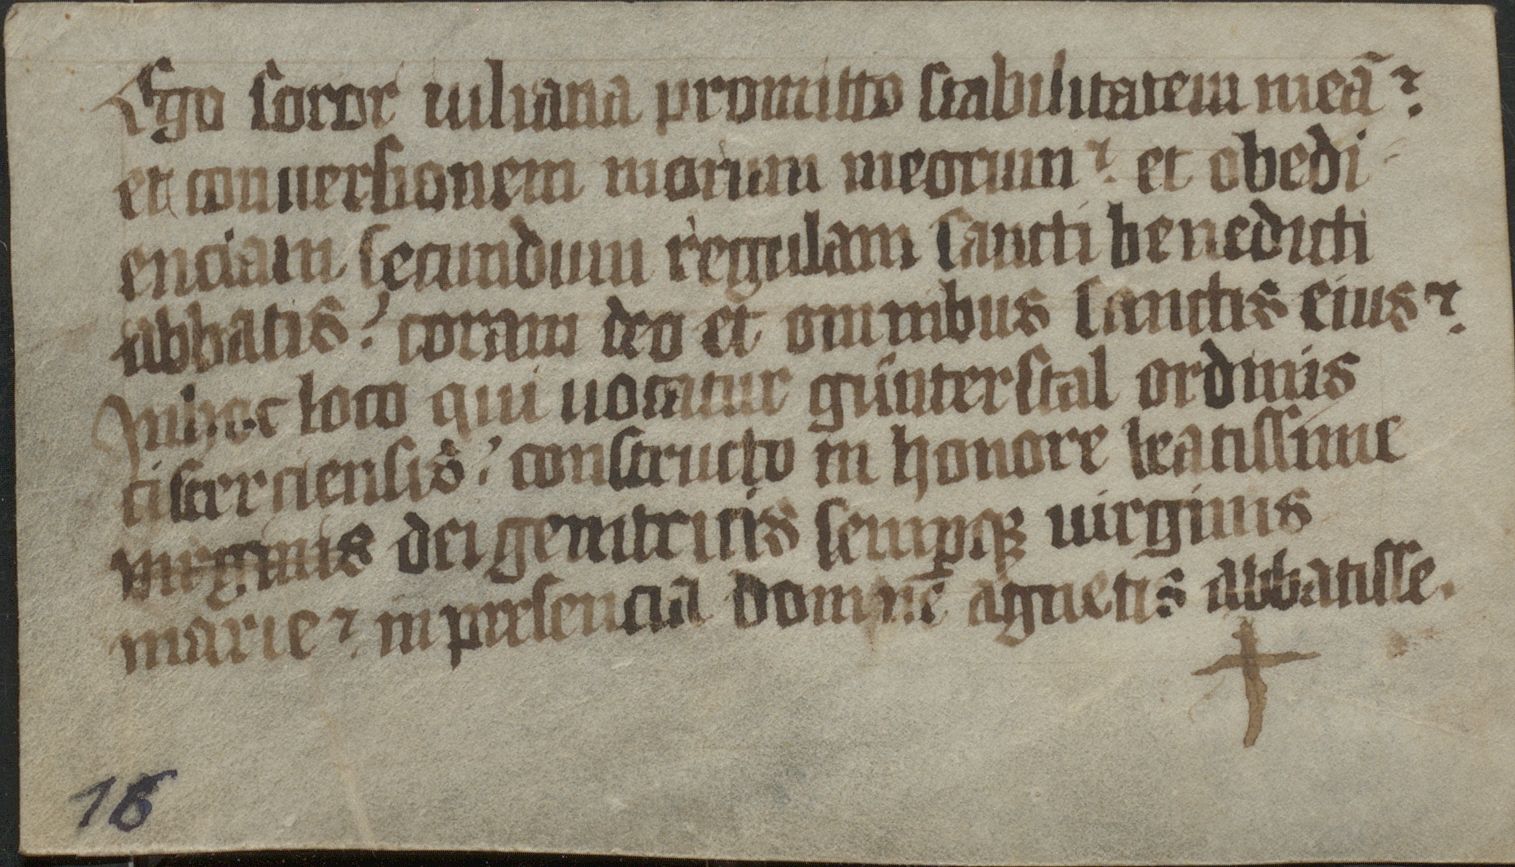 Ego soror iuliana promitto stabilitatem meā.
et conuersionem morum meorum. et obedi
enciam secundum regulam sancti benedicti
abbatis. coram deo et omnibus sanctis eius.
In hoc loco qui uocatur günterstal ordinis
cisterciensis. constructo in honore beatissime
virginis dei genitricis semꝑqꝫ uirginis
marie. in presencia domine agnetis abbatisse.
16